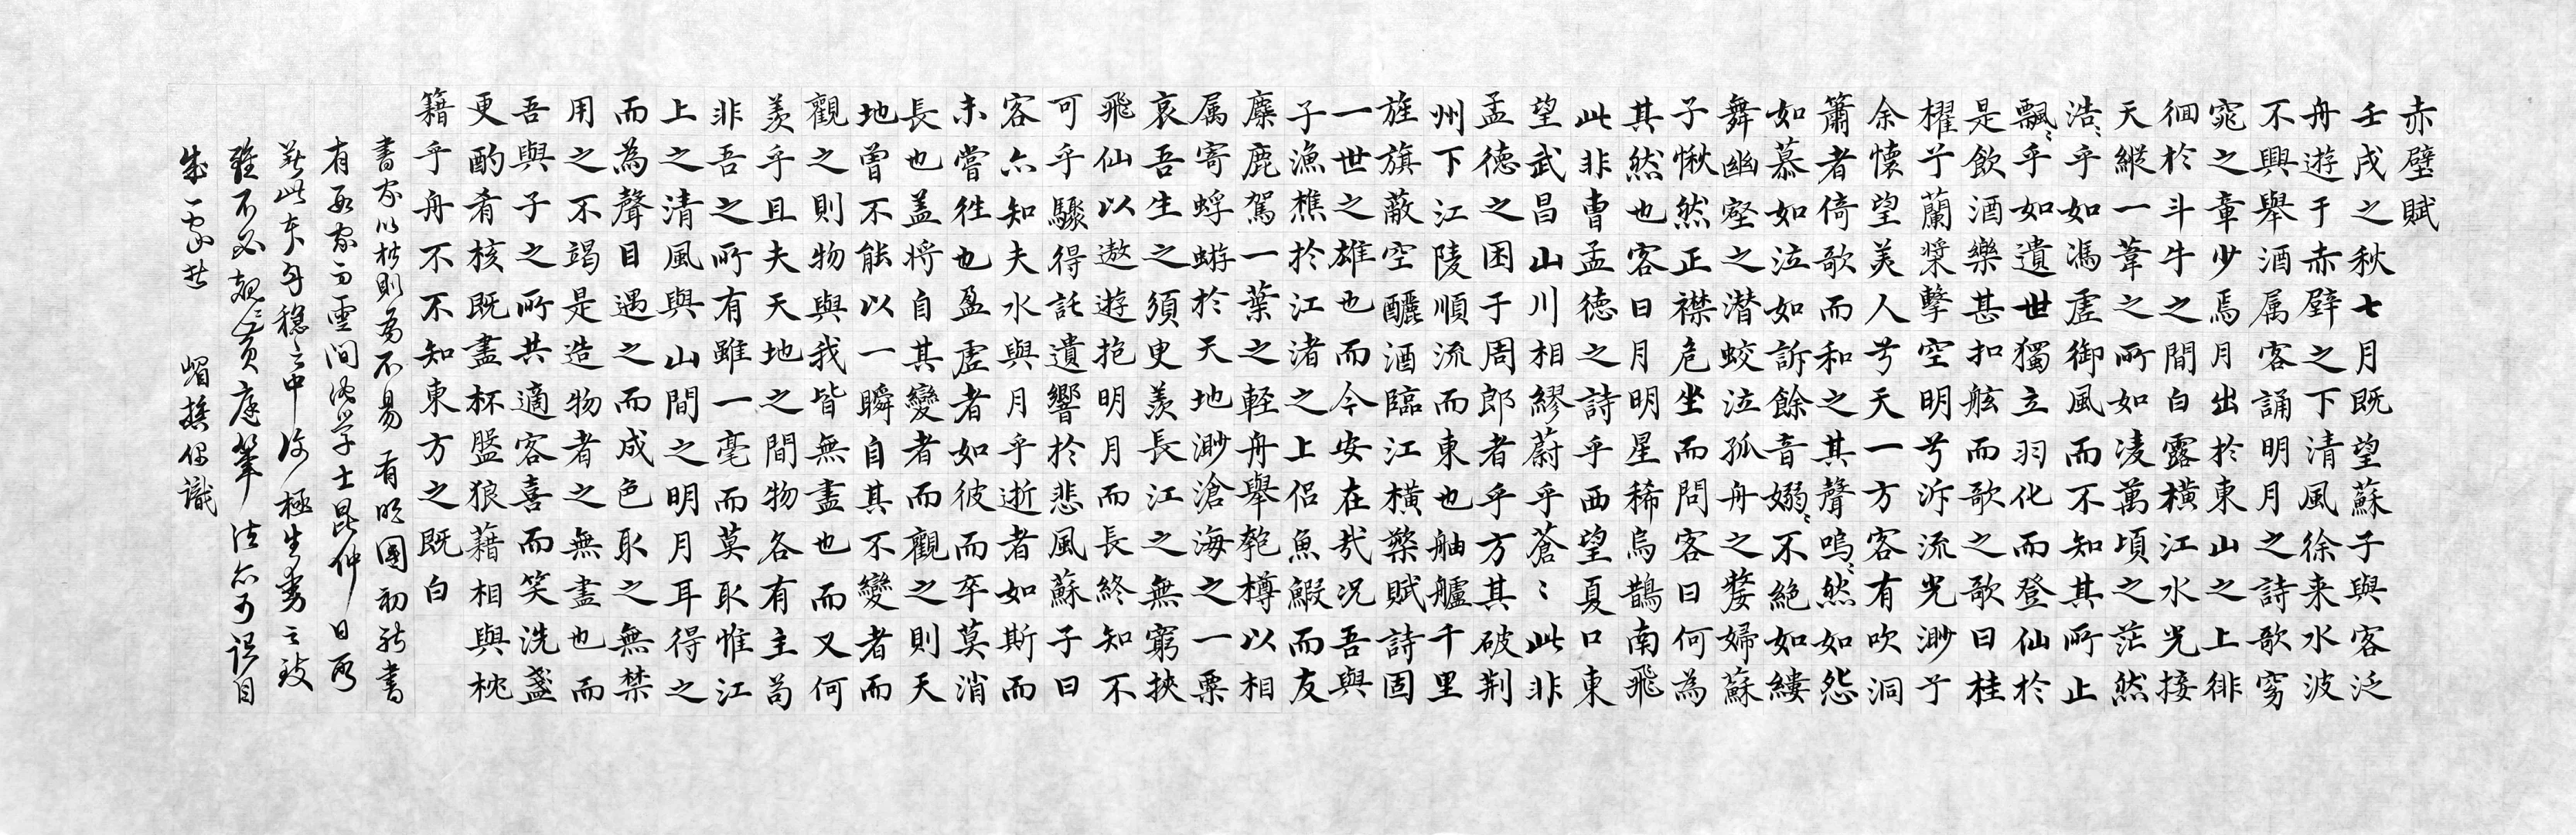 赤壁賦
壬戌之秋七月既望蘇子與客泛
舟遊于赤壁之下清風徐来水波
不興舉酒属客誦明月之詩歌窈
窕之章少焉月出於東山之上徘
徊於斗牛之間白露橫江水光接
天縱一葦之所如凌萬頃之茫然
浩〻乎如馮虛御風而不知其所止
飄〻乎如遺世獨立羽化而登仙於
是飲酒樂甚扣舷而歌之歌曰桂
櫂兮蘭槳擊空明兮泝流光渺兮
余懷望美人兮天一方客有吹洞
簫者倚歌而和之其聲嗚〻然如怨
如慕如泣如訴餘音嫋〻不絕如縷
舞幽壑之潜蛟泣孤舟之嫠婦蘇
子愀然正襟危坐而問客曰何為
其然也客曰月明星稀烏鵲南飛
此非曹孟德之詩乎西望夏口東
望武昌山川相繆蔚乎蒼〻此非
孟德之困于周郎者乎方其破荆
州下江陵順流而東也舳艫千里
旌旗蔽空釃酒臨江橫槊賦詩固
一世之雄也而今安在㢤况吾與
子漁樵於江渚之上侶魚鰕而友
麋鹿駕一葉之輕舟舉匏樽以相
属寄蜉蝣於天地渺滄海之一粟
哀吾生之須臾羨長江之無窮挾
飛仙以遨遊抱明月而長終知不
可乎驟得託遺響於悲風蘇子曰
客亦知夫水與月乎逝者如斯而
未嘗往也盈虛者如彼而卒莫消
長也盖將自其變者而觀之則天
地曾不能以一瞬自其不變者而
觀之則物與我皆無盡也而又何
羨乎且夫天地之間物各有主苟
非吾之所有雖一毫而莫取惟江
上之清風與山間之明月耳得之
而為聲目遇之而成色取之無禁
用之不竭是造物者之無盡也而
吾與子之所共適客喜而笑洗盞
更酌肴核既盡杯盤狼藉相與枕
籍乎舟不不知東方之既白
書家以楷則為不易有明國初能書
有數家而雲間沈學士昆仲日所
此本安穩之中極生動之致
雖不必庭筆法亦可識目
成一家書 嵋樵偶識